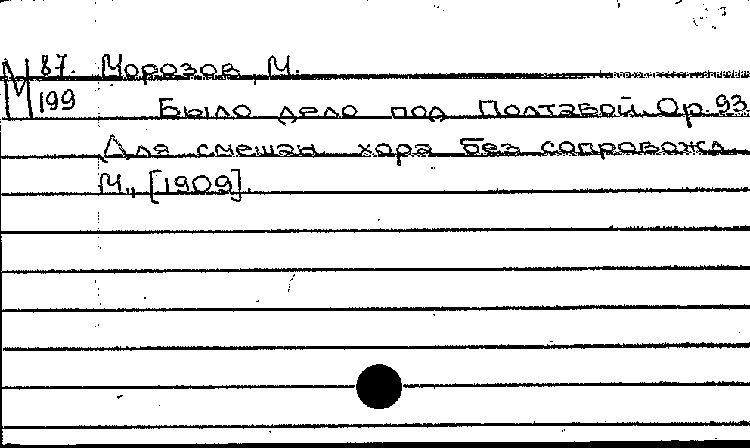 М 87. Морозов, М.
199 Было дело под Полтавой. Ор. 93
Для смешан. хора без сопровожд.
М., [1909].